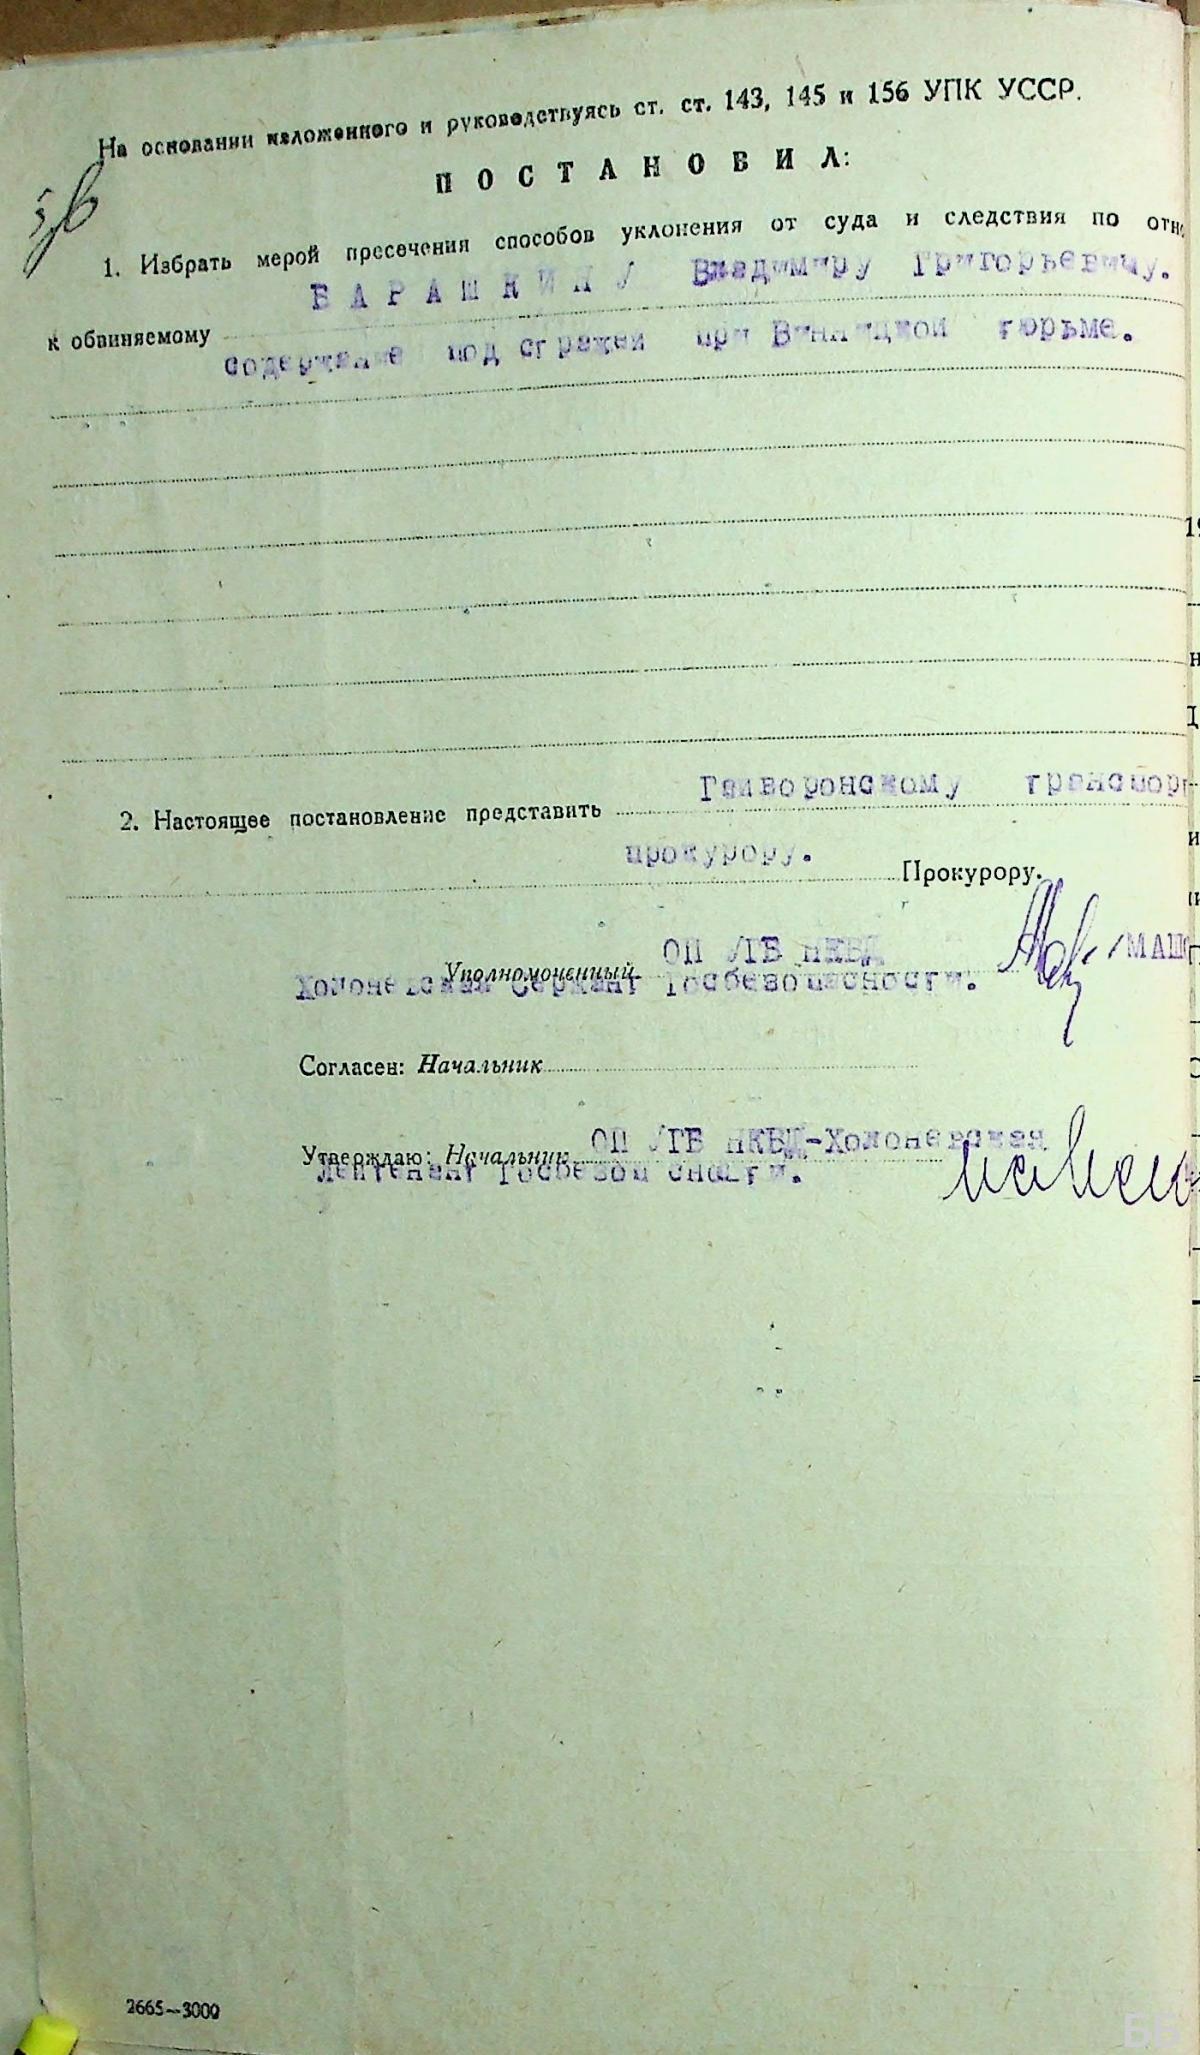 На основании изложенного и руководствуясь ст. ст. 143, 145 и 156 УПК УССР.
ПОСТАНОВИЛ:
1. Избрать мерой пресечения способов уклонения от суда и следствия по отно
БАРАШКИНУ Владимиру Григорьевичу.
к обвиняемому
содержание под стражей при Винницкой тюрьме.
Гайворонскому транспор
2. Настоящее постановление представить
прокурору.
Прокурору.
ОП УГБ НКВД /МАШ
Уполномоченный
Холоневская Сержант Госбезопасности.
Согласен: Начальник
ОП УГБ НКВД-Холоневская
Утверждаю: Начальник
Лейтенант Госбезопасности.
2665—3000
ББ